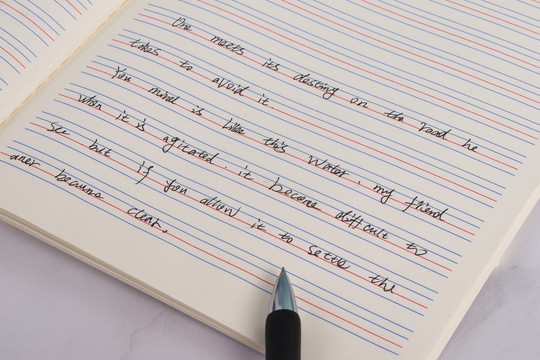 One meets its destiny on the road he
takes to avoid it.
You mind is like this water, my friend
when it is agitated, it become difficult to
see but if you allow it to settle the
aner became clear.